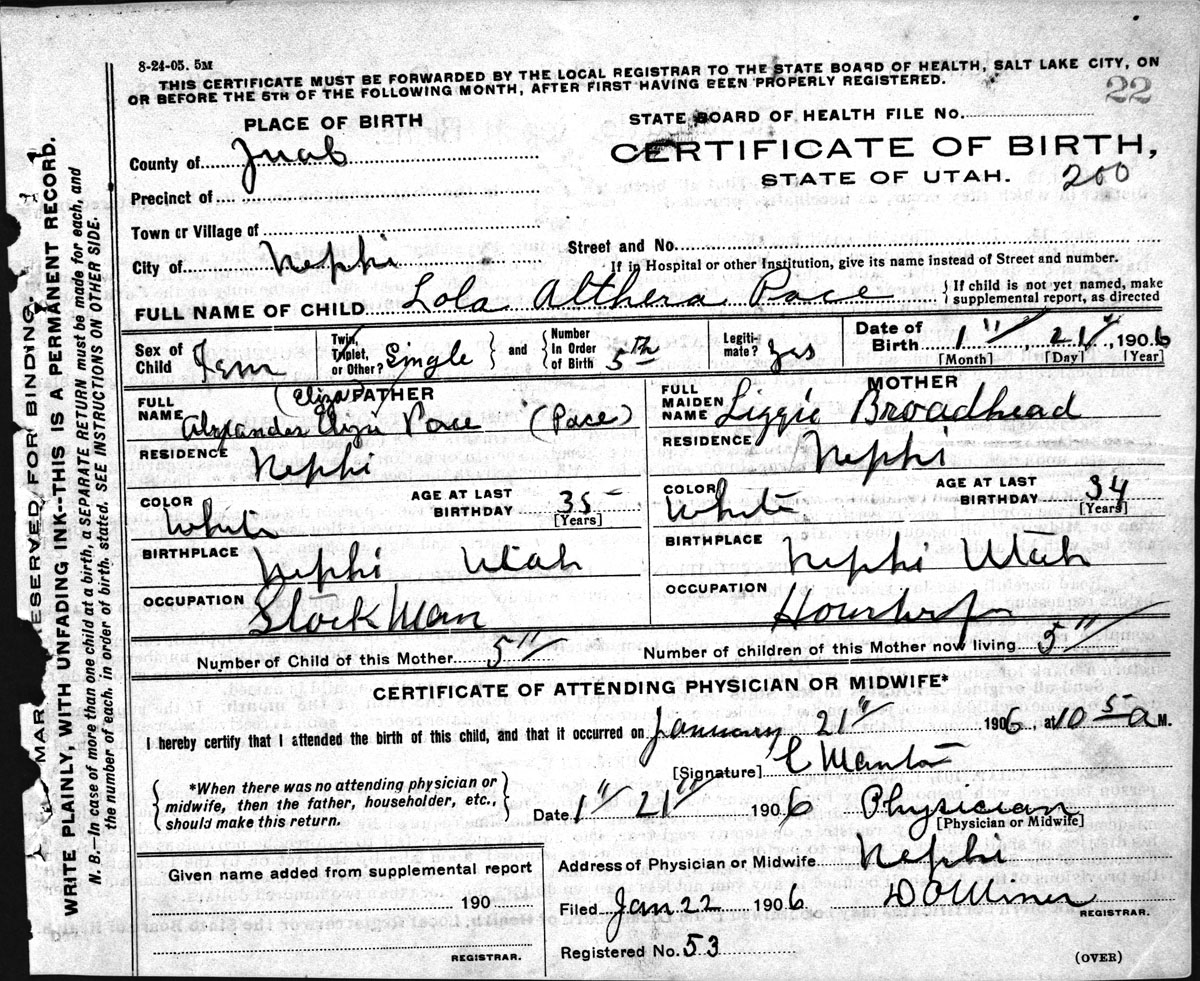 8-24-05. 5M
THIS CERTIFICATE MUST BE FORWARDED BY THE LOCAL REGISTRAR TO THE STATE BOARD OF HEALTH, SALT LAKE CITY, ON
OR BEFORE THE 5TH OF THE FOLLOWING MONTH, AFTER FIRST HAVING BEEN PROPERLY REGISTERED.
22
PLACE OF BIRTH
STATE BOARD OF HEALTH FILE NO.
County of Juab
CERTIFICATE OF BIRTH,
STATE OF UTAH. 200
Precinct of
Town or Village of
Street and No.
City of Nephi
If in Hospital or other Institution, give its name instead of Street and number.
FULL NAME OF CHILD Lola Althera Pace
If child is not yet named, make
supplemental report, as directed
Sex of Child Fem
Twin, Triplet, or Other? Single
and Number In Order of Birth 5th
Legitimate? Yes
Date of Birth 1" 21" 1906
[Month] [Day] [Year]
FATHER
FULL NAME Alexander Pace (Pace)
RESIDENCE Nephi
COLOR White
AGE AT LAST BIRTHDAY 35 [Years]
BIRTHPLACE Nephi Utah
OCCUPATION Stockman
MOTHER
FULL MAIDEN NAME Liggie Broadhead
RESIDENCE Nephi
COLOR White
AGE AT LAST BIRTHDAY 34 [Years]
BIRTHPLACE Nephi Utah
OCCUPATION
Number of Child of this Mother 5"
Number of children of this Mother now living 5"
CERTIFICATE OF ATTENDING PHYSICIAN OR MIDWIFE*
I hereby certify that I attended the birth of this child, and that it occurred on January 21" 1906, at 10 5 a M.
[Signature] C
*When there was no attending physician or
midwife, then the father, householder, etc.,
should make this return.
Date 1" 21" 1906 Physician
[Physician or Midwife]
Given name added from supplemental report
190
REGISTRAR.
Address of Physician or Midwife Nephi
Filed Jan 22 1906 D O Miner
REGISTRAR.
Registered No. 53
(OVER)
MAR ESERVED FOR BINDING.
WRITE PLAINLY, WITH UNFADING INK--THIS IS A PERMANENT RECORD.
N. B.—In case of more than one child at a birth, a SEPARATE RETURN must be made for each, and
the number of each, in order of birth, stated. SEE INSTRUCTIONS ON OTHER SIDE.